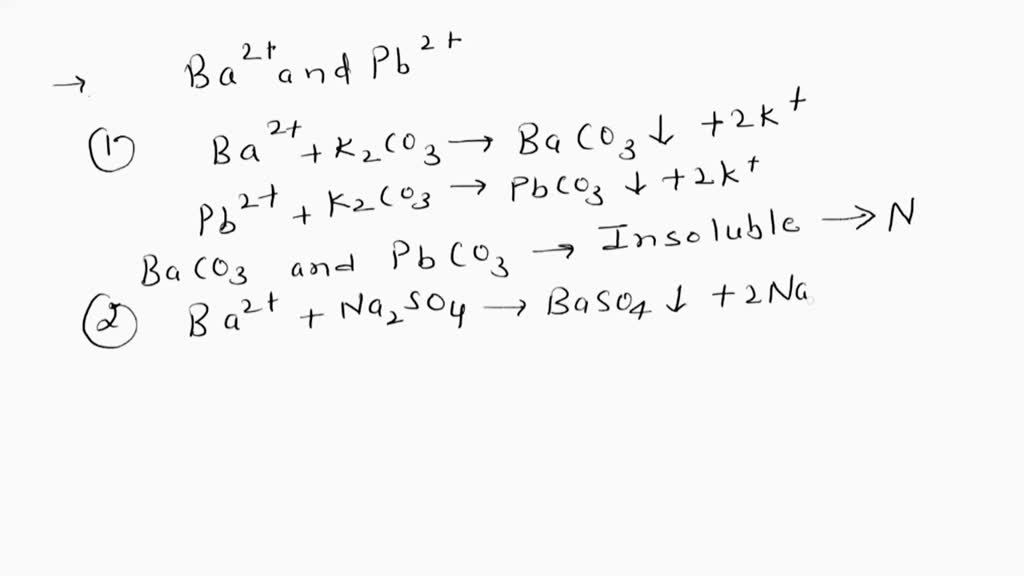 → Ba²⁺ and Pb²⁺
① Ba²⁺ + K₂CO₃ → BaCO₃ ↓ + 2K⁺
Pb²⁺ + K₂CO₃ → PbCO₃ ↓ + 2K⁺
BaCO₃ and PbCO₃ → Insoluble → N
② Ba²⁺ + Na₂SO₄ → BaSO₄ ↓ + 2Na